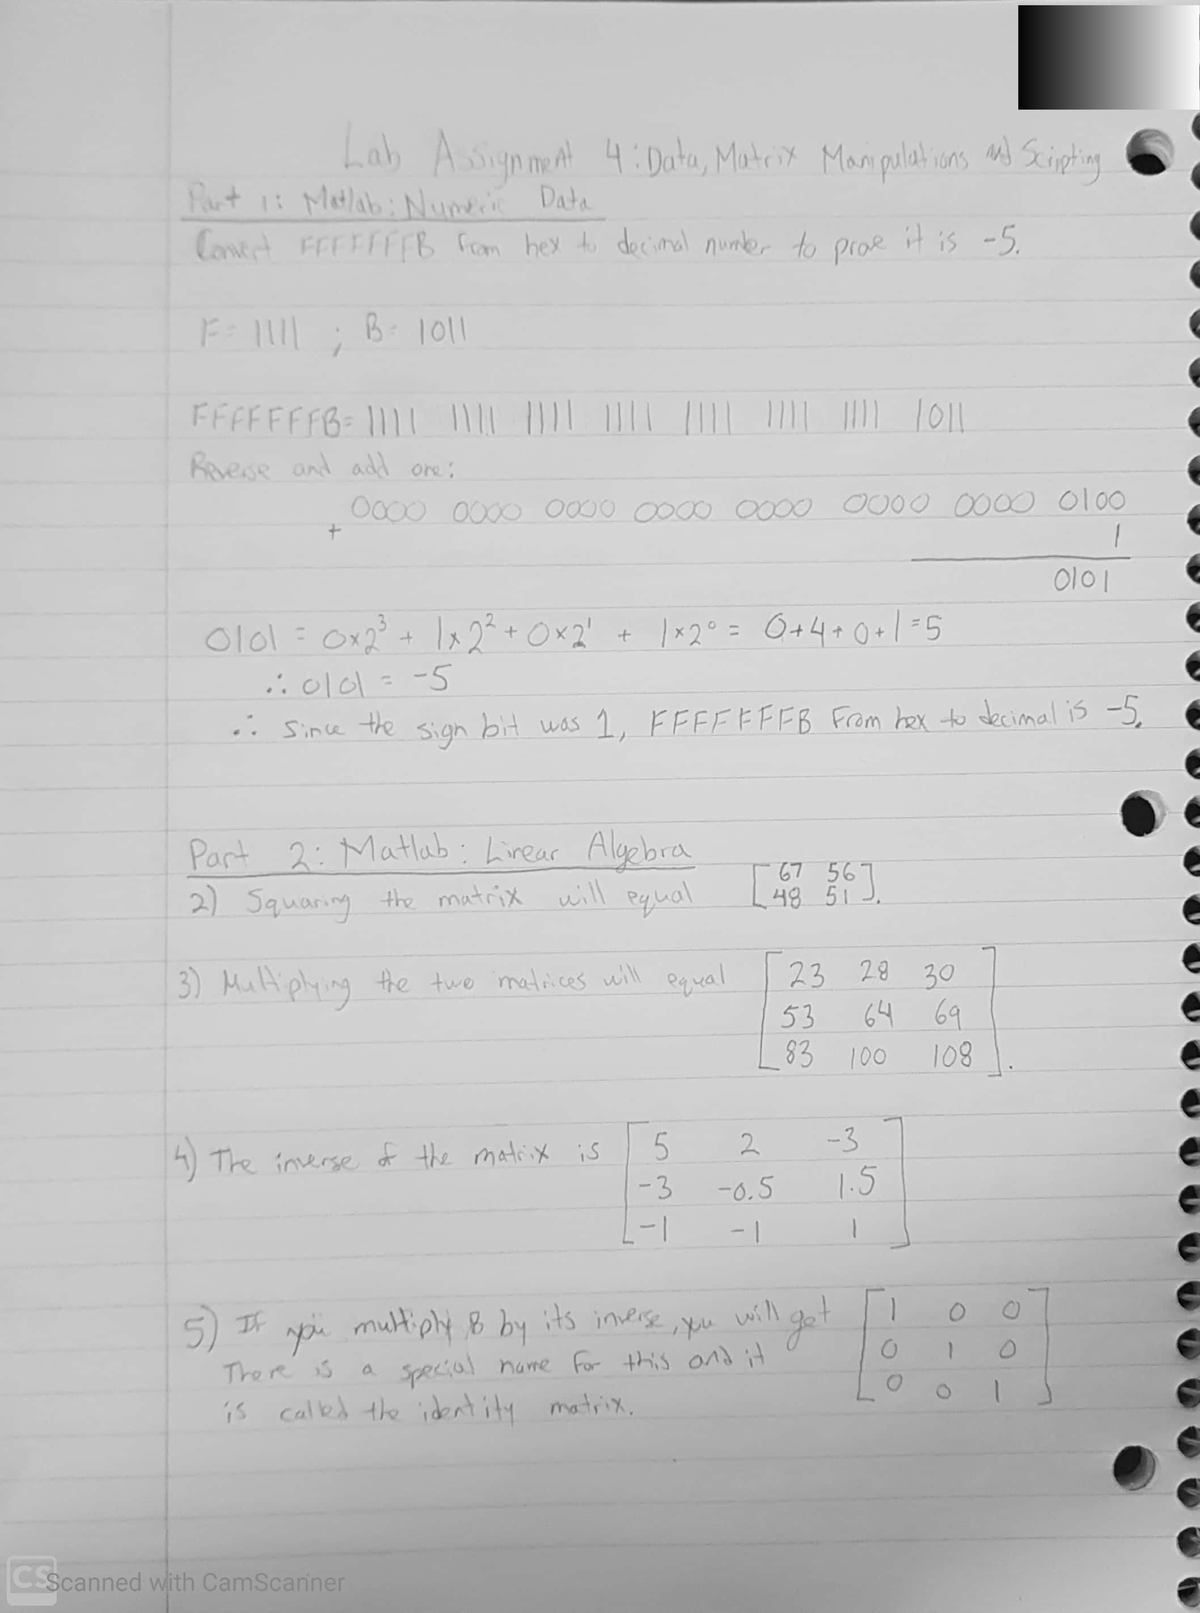 Lab Assignment 4: Data, Matrix Manipulations and Scripting
Part 1: Matlab: Numeric Data
Convert FFFFFFFB from hex to decimal number to prove it is -5.
F= 1111 ; B= 1011
FFFFFFFB= 1111 1111 1111 1111 1111 1111 1111 1011
Reverse and add one:
0000 0000 0000 0000 0000 0000 0000 0100
+ 1
0101
0101 = 0x2³ + 1x2² + 0x2¹ + 1x2⁰ = 0+4+0+1=5
∴ 0101 = -5
∴ Since the sign bit was 1, FFFFFFFB From hex to decimal is -5.
Part 2: Matlab: Linear Algebra
2) Squaring the matrix will equal [67 56
48 51].
3) Multiplying the two matrices will equal [23 28 30
53 64 69
83 100 108].
4) The inverse of the matrix is [5 2 -3
-3 -0.5 1.5
-1 -1 1]
5) If you multiply B by its inverse, you will get [1 0 0
There is a special name for this and it 0 1 0
is called the identity matrix. 0 0 1]
CS Scanned with CamScanner